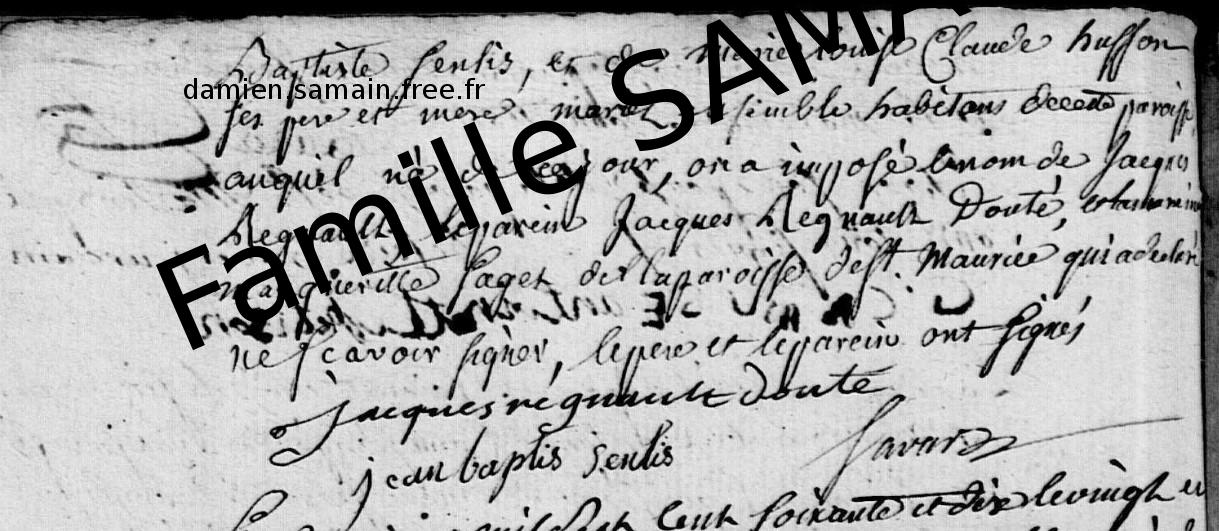 Baptiste Senlis, et de marie louise Claude husson
damien.samain.free.fr
ses pere et mere mariez ensemble habitans de cette paroisse
Famille SAMA
auquel né de ce jour, on a imposé le nom de Jacques
Regnault le parein Jacques Regnault Douté, et la mareine
margueritte Saget de la paroisse de st. Maurice qui a declaré
ne scavoir signer, le pere et le parein ont signés
jacques regnault doute
jean baptis senlis
Savard
cent soixante et dix le vingt et